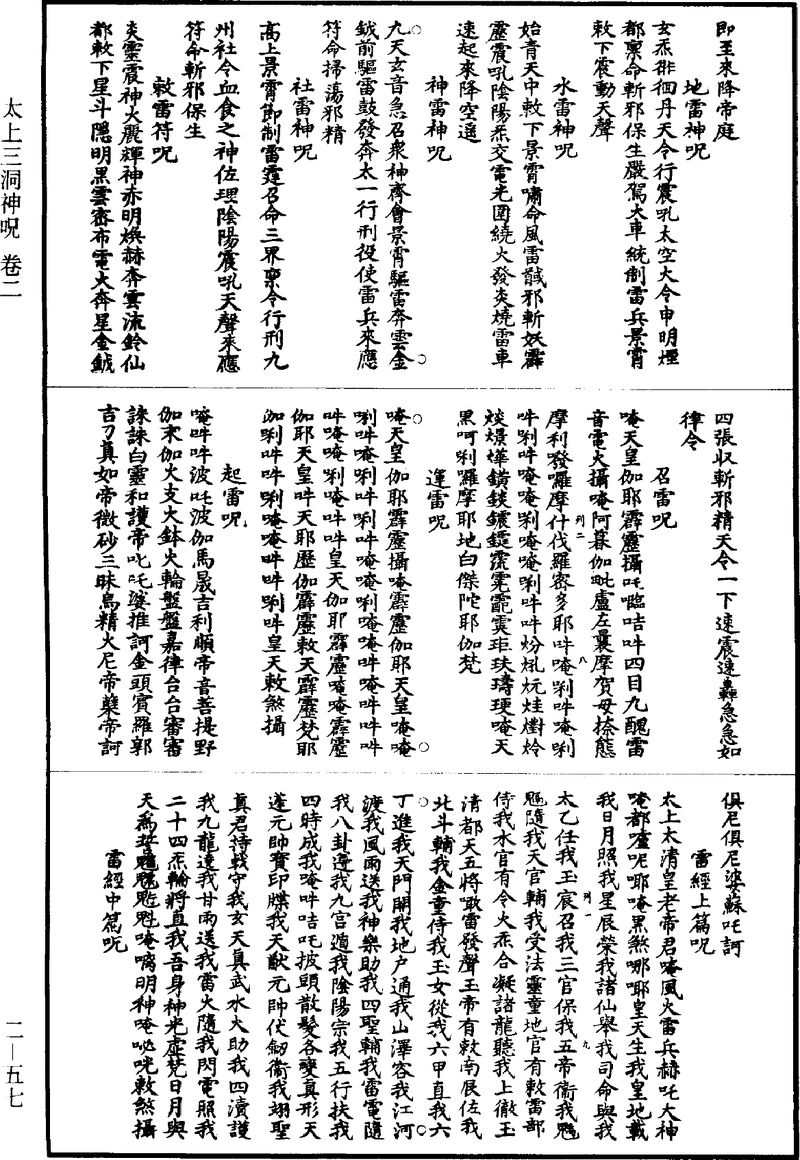 太上三洞神呪 卷二
二—五七
即至來降帝庭
地雷神呪
玄炁徘徊丹天令行震吼太空大令申明煙
都稟命斬邪保生嚴駕火車統制雷兵景霄
敕下震動天聲
水雷神呪
始青天中敕下景霄嘯命風雷馘邪斬妖霹
靂震吼陰陽炁交電光圍繞火發炎燒雷車
速起來降空遥
神雷神呪
九天玄音急召衆神齊會景霄驅雷奔雲金
鉞前驅雷鼓發奔太一行刑役使雷兵來應
符命掃蕩邪精
社雷神呪
高上景霄節制雷霆召命三界稟令行刑九
州社令血食之神佐理陰陽震吼天聲來應
符命斬邪保生
敕雷符呪
炎靈震神火麗輝神赤明煥赫奔雲流鈴仙
都敕下星斗隱明黑雲密布電火奔星金鉞
四張収斬邪精天令一下速震速轟急急如
律令
召雷呪
唵天皇伽耶霹靂攝吒㘕咭吽四目九醜雷
音電火攝唵阿暮伽毗盧左曩摩賀毋捺態
摩利發囉摩什伐羅密多耶吽唵唎吽唵唎
列二
八
黑呵唎囉摩耶地白傑陀耶伽梵
運雷呪
唵天皇伽耶霹靂攝唵霹靂伽耶天皇唵唵
唎吽唵唎吽唎吽唵唵唎唵唵吽唵吽吽吽
吽唵唵唎唵吽吽皇天伽耶霹靂唵唵霹靂
伽耶天皇吽天耶歷伽霹靂敕天霹靂梵耶
伽唎吽吽唎唵唵吽吽唎吽皇天敕煞攝
起雷呪
唵吽吽波吒波伽馬晟吉利順帝音菩提野
伽宋伽火支大鉢火輪盤盤嘉律台台審審
誄誄白靈和護帝叱吒婆推訶金頭賓羅郭
吉刀真如帝微砂三昧烏精火尼帝㜸帝訶
俱尼俱尼婆蘇吒訶
雷經上篇呪
太上太清皇老帝君唵風火雷兵赫吒大神
唵都嚧呢耶唵黑煞哪耶皇天生我皇地載
我日月照我星辰榮我諸仙舉我司命與我
列一
九
太乙任我玉宸召我三官保我五帝衛我魁
隨我天官輔我受法靈童地官有敕雷部
侍我水官有令火炁合凝諸龍聽我上徹玉
清都天五將嗽雷發聲玉帝有敕南辰佐我
北斗輔我金童侍我玉女從我六甲直我六
丁進我天門開我地户通我山澤容我江河
渡我風雨送我神樂助我四聖輔我雷電隨
我八卦遵我九宫遁我陰陽宗我五行扶我
四時成我唵吽咭吒披頭散髮各變真形天
蓬元帥寶印牒我天猷元帥伏劒衛我翊聖
真君持戟守我玄天真武水火助我四瀆護
我九龍達我甘雨送我雷火隨我閃電照我
二十四炁輪將直我吾身神光虚梵日月與
雷經中篇呪